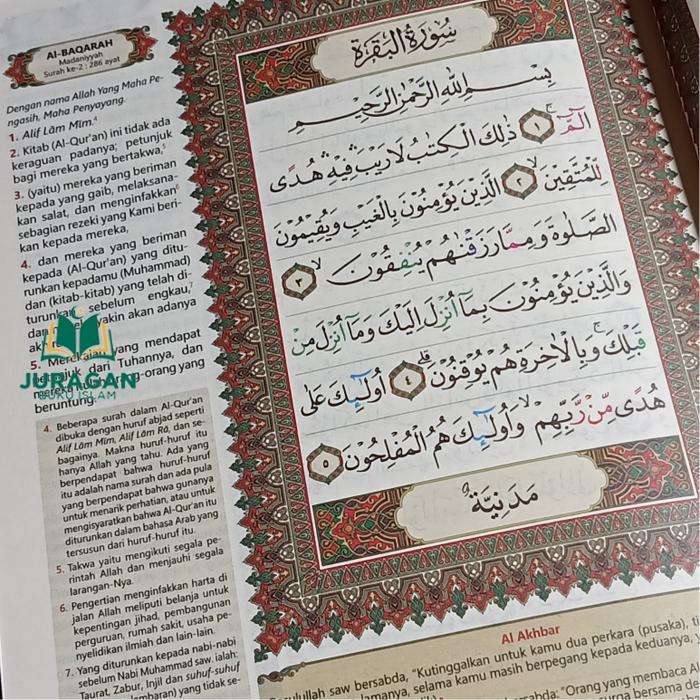 Al-BAQARAH
Madaniyyah
Surah ke-2 : 286 ayat
Dengan nama Allah Yang Maha Pe-
ngasih, Maha Penyayang.
1. Alif Lām Mīm.⁴
2. Kitab (Al-Qur'an) ini tidak ada
keraguan padanya; petunjuk
bagi mereka yang bertakwa,⁵
3. (yaitu) mereka yang beriman
kepada yang gaib, melaksana-
kan salat, dan menginfakkan⁶
sebagian rezeki yang Kami beri-
kan kepada mereka,
4. dan mereka yang beriman
kepada (Al-Qur'an) yang ditu-
runkan kepadamu (Muhammad)
dan (kitab-kitab) yang telah di-
turunkan sebelum engkau,⁷
yakin akan adanya
5. yang mendapat
dari Tuhannya, dan
orang-orang yang
beruntung.
JURAGAN
BUKU ISLAM
4. Beberapa surah dalam Al-Qur'an
dibuka dengan huruf abjad seperti
Alif Lām Mīm, Alif Lām Rā, dan se-
bagainya. Makna huruf-huruf itu
hanya Allah yang tahu. Ada yang
berpendapat bahwa huruf-huruf
itu adalah nama surah dan ada pula
yang berpendapat bahwa gunanya
untuk menarik perhatian, atau untuk
mengisyaratkan bahwa Al-Qur'an itu
diturunkan dalam bahasa Arab yang
tersusun dari huruf-huruf itu.
5. Takwa yaitu mengikuti segala pe-
rintah Allah dan menjauhi segala
larangan-Nya.
6. Pengertian menginfakkan harta di
jalan Allah meliputi belanja untuk
kepentingan jihad, pembangunan
perguruan, rumah sakit, usaha pe-
nyelidikan ilmiah dan lain-lain.
7. Yang diturunkan kepada nabi-nabi
sebelum Nabi Muhammad saw. ialah:
Taurat, Zabur, Injil dan suhuf-suhuf
(lembaran) yang tidak se-
سُوْرَةُ الْبَقَرَةِ
بِسْمِ اللّٰهِ الرَّحْمٰنِ الرَّحِيْمِ
الۤمّۤ ۚ ۝١ ذٰلِكَ الْكِتٰبُ لَا رَيْبَ ۛ فِيْهِ ۛ هُدًى
لِّلْمُتَّقِيْنَۙ ۝٢ الَّذِيْنَ يُؤْمِنُوْنَ بِالْغَيْبِ وَيُقِيْمُوْنَ
الصَّلٰوةَ وَمِمَّا رَزَقْنٰهُمْ يُنْفِقُوْنَۙ ۝٣
وَالَّذِيْنَ يُؤْمِنُوْنَ بِمَآ اُنْزِلَ اِلَيْكَ وَمَآ اُنْزِلَ مِنْ
قَبْلِكَۚ وَبِالْاٰخِرَةِ هُمْ يُوْقِنُوْنَۗ ۝٤ اُولٰۤىِٕكَ عَلٰى
هُدًى مِّنْ رَّبِّهِمْ ۙ وَاُولٰۤىِٕكَ هُمُ الْمُفْلِحُوْنَ ۝٥
مَدَنِيَّة
Al Akhbar
Rasulullah saw bersabda, "Kutinggalkan untuk kamu dua perkara (pusaka), ti
lamanya, selama kamu masih berpegang kepada keduanya,
"Orang yang membaca A